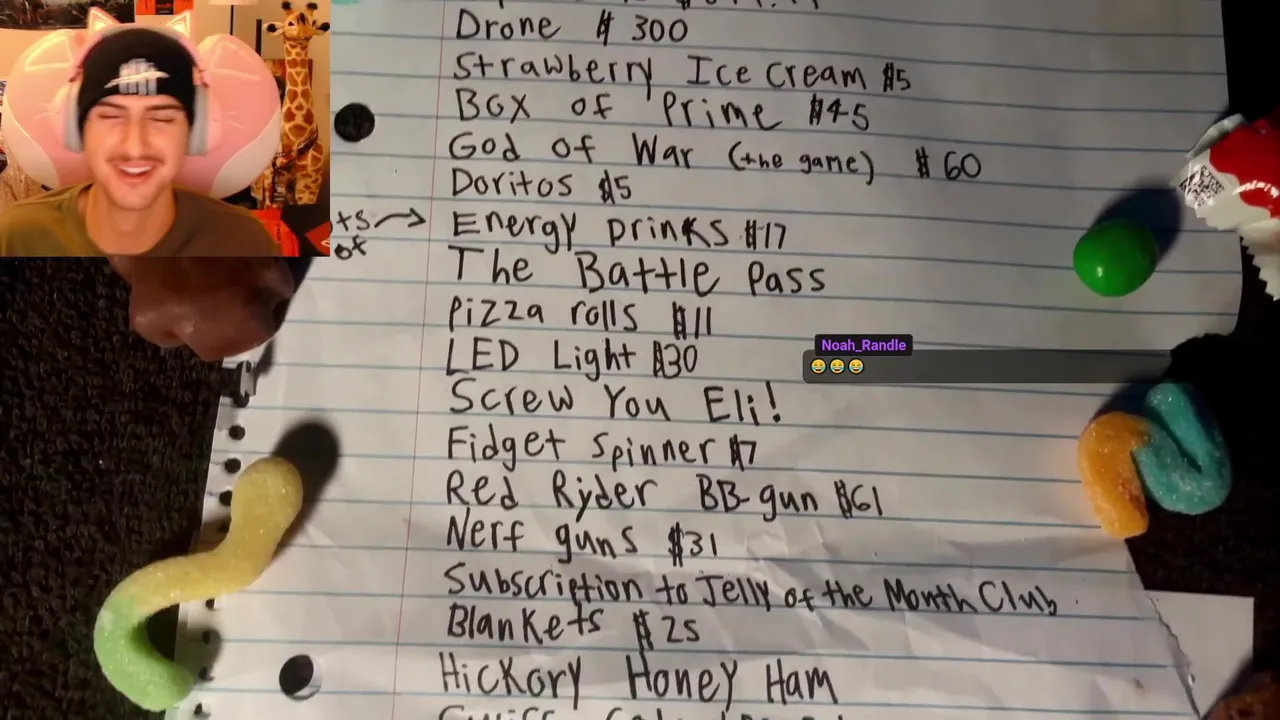 Drone $300
Strawberry Ice cream $5
Box of Prime $45
God of War (the game) $60
Doritos $5
ts → Energy Drinks $17
of
The Battle Pass
Pizza rolls $11
LED Light $30
Noah_Randle
😂😂😂
Screw You Eli!
Fidget spinner $7
Red Ryder BB-gun $61
Nerf guns $31
Subscription to Jelly of the Month Club
Blankets $25
Hickory Honey Ham